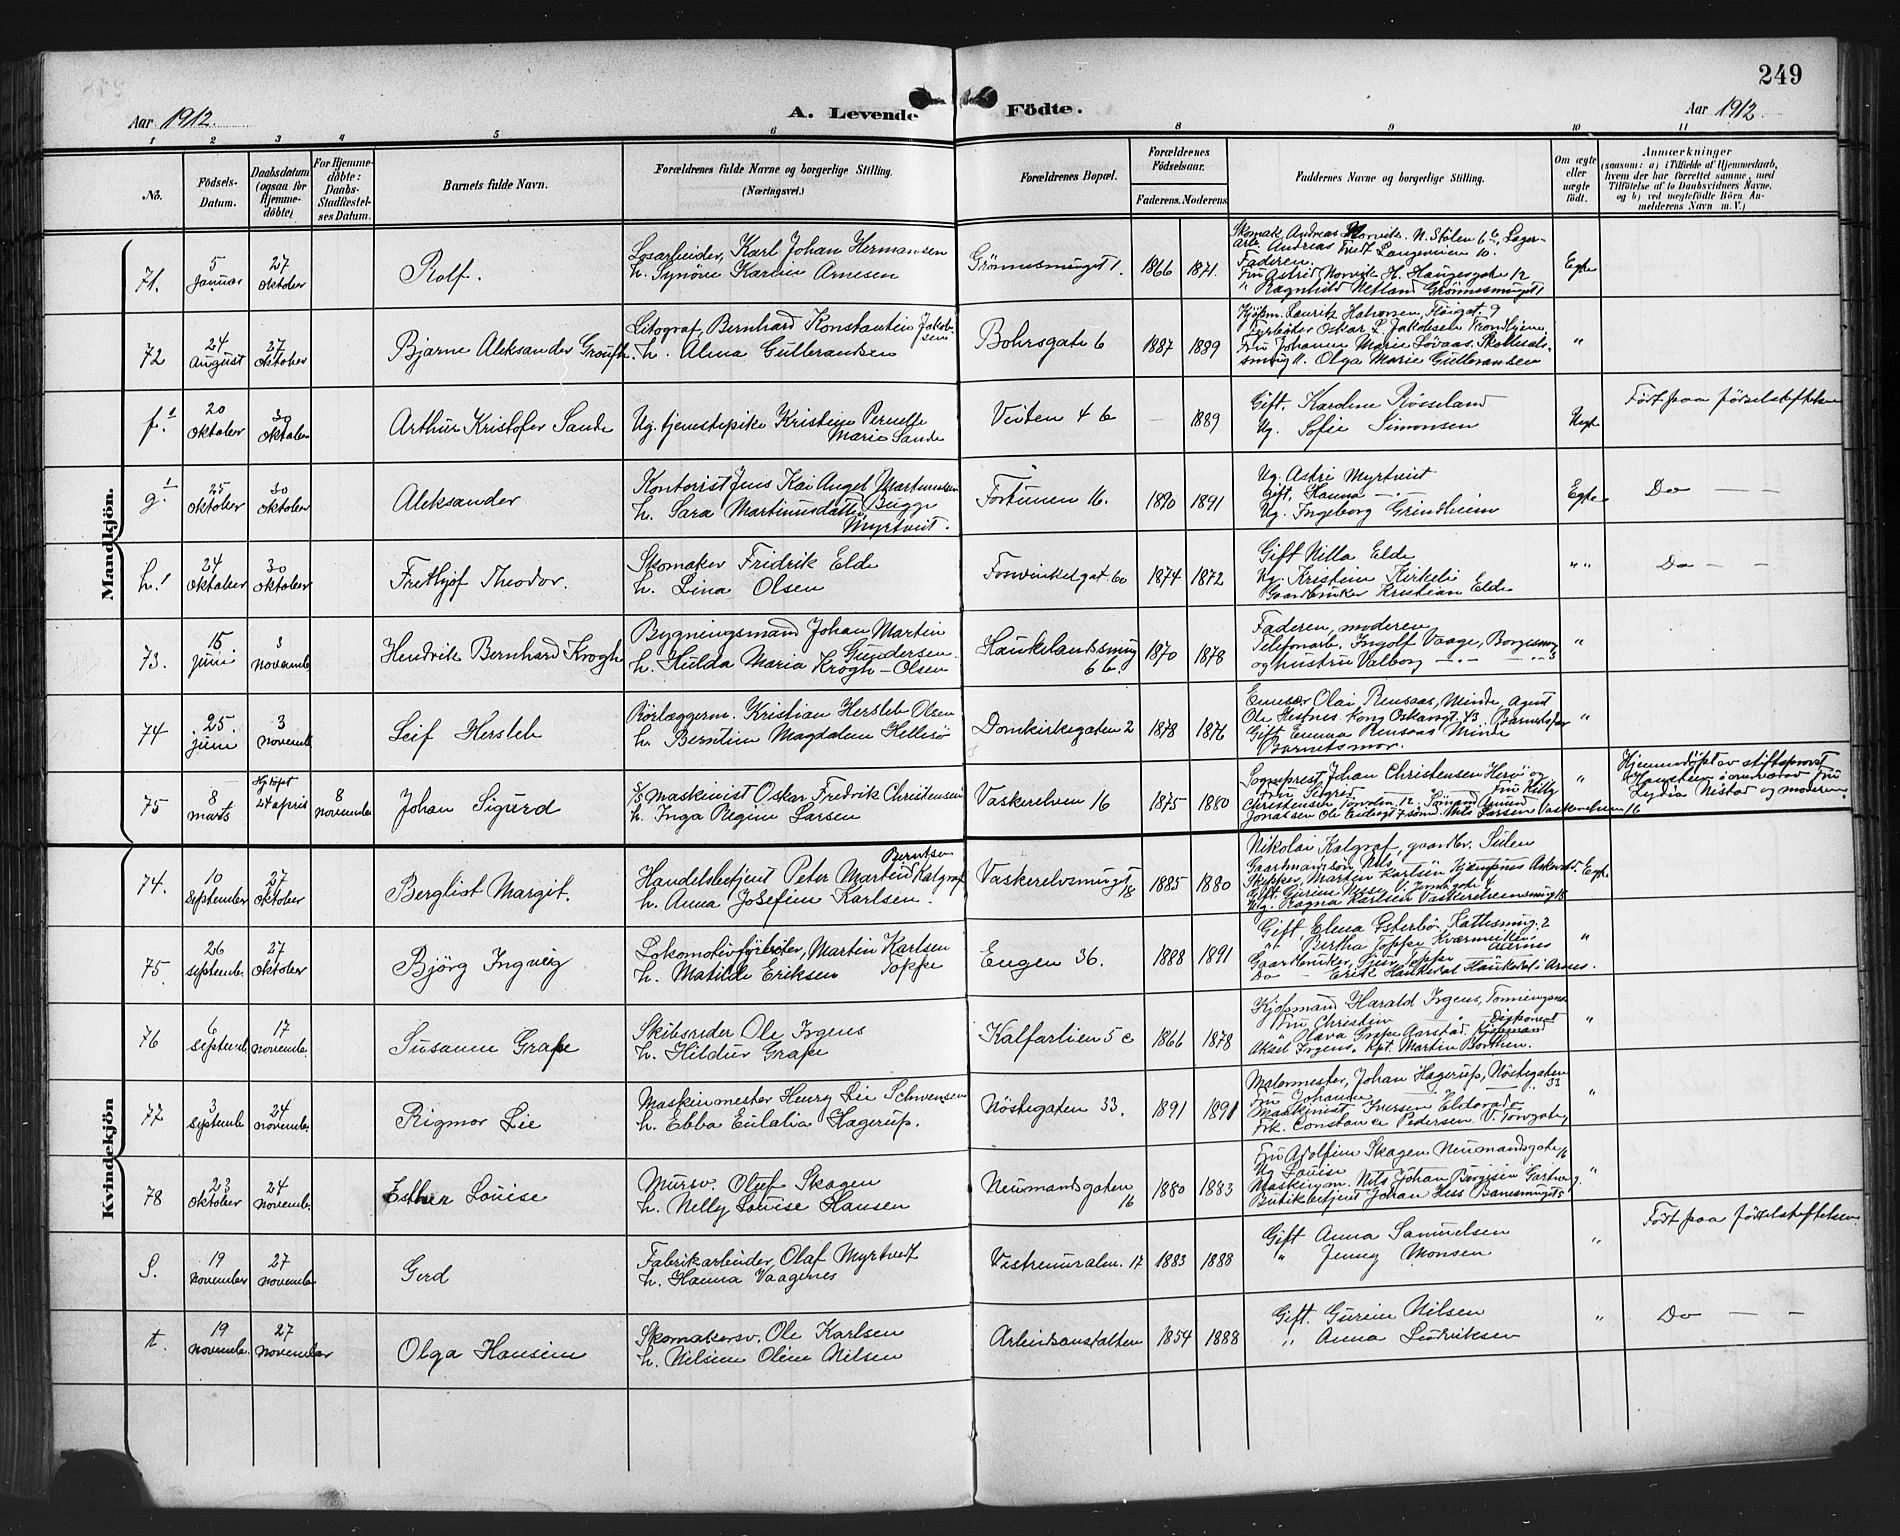 249
Aar 1912. A. Levende Födte. Aar 1912.
1 2 3 4 5 6 8 9 10 11
No. Födsels-Datum. Daabsdatum (ogsaa for Hjemme-döbte) For Hjemme-döbte: Daabs-Stadfæstel-ses Datum. Barnets fulde Navn. Forældrenes fulde Navne og borgerlige Stilling. (Næringsvei.) Forældrenes Bopæl. Forældrenes Födselsaar. Faderens. Moderens Faddernes Navne og borgerlige Stilling. Om ægte eller uægte födt. Anmærkninger (saasom: a) i Tilfælde af Hjemmedaab, hvem der har forrettet samme, med Tilföielse af to Daabsvidners Navne, og b) ved uegtefödte Börn An-melderens Navn m. V.)
Mandkjön.
71. 5 Januar 27 Oktober Rolf. Løsarbeider, Karl Johan Hermansen
h. Synöve Karine Arnesen Grønnesmuget 1. 1866 1871. Skomak. Andreas Norvik. N. Stølen 6b, Lager-
arb. Andreas Fredt Langeveien 10.
Faderen.
Fru Astrid Norvik H. Haugesgate 12
" Ragnhild Netland Grønnesmuget 1 Egte
72 24 August 27 Oktober Bjarne Aleksander Grouth. Litograf, Bernhard Konstantin Jakobsen
h. Alma Gulbransen Bohrsgate 6 1887 1889 Kjøpm. Lauritz Halvorsen, Fløigat. 9
Fyrbøter Oskar L. Jakobsen Trondhjem,
Fru Johanne Marie Lövaas, Skottesals-
smug 11. Olga Marie Gulbransen "
f.1 20 Oktober 30 Oktober Arthur Kristofer Sande Ug. tjenestepike Kristine Pernelle
Marie Sande Veiten 4 b — 1889 Gift. Karoline Røsseland
Ug. Sofie Simonsen Uegte Født paa fødselstiftelsen
g.1 25 Oktober 30 Oktober Aleksander Kontorist Jens Kai Angel Martinussen
h. Sara Martinusdatter Bugge
Myrtveit. Fortunen 16. 1890 1891 Ug. Astri Myrtveit
Gift. Hanna — .
Ug. Ingeborg Grindheim Egte Do — —
h.1 24 Oktober 30 Oktober Frethjof Theodor. Skomaker Fridrik Elde
h. Lina Olsen Fosvinkelgat. 60 1874 1872 Gift Nilla Elde
Ug. Kristine Kirkeli
Gaardbruker Kristian Elde " " Do — —
73. 15 Juni 3 November Hendrik Bernhard Krogh Bygningsmand Johan Martin
Gundersen
h. Hulda Maria Krogh-Olsen Haukelandssmug
6 b. 1870 1878 Faderen, moderen
Telefonarb. Ingolf Vaage, Borgesmug
og hustru Valborg — . — — . . 3 "
74 25. Juni 3 Novemb. Leif Hersleb Rörlæggerm. Kristian Hersleb Olsen
h. Berntine Magdalene Hellesö Domkirkegaten 2 1878 1876 Olai Rensaas, Minde, Agent
Ole Hestnes Kong Oskarsgt. 43. Barnets far
Gift Emma Rensaas Minde
Barnets mor. "
75 8 marts 24 april 8 November Johan Sigurd S/S Maskinist Oskar Fredrik Christensen
h. Inga Regine Larsen Vaskerelven 16 1875 1880 Sogneprest, Johan Christensen Herø og
Fru Sigrid Fru Kitty
Christensen, Torvalm. 12. Sømand
Jonassen Ole Nils Larsen Vaskerelven 16 " Hjemmedøpt av stiftsprovst
Hansteen i overvær av Fru
Lydia Nistad og moderen.
Kvindekjön
74. 10 September 27 Oktober Berglist Margit. Handelsbetjent Peter Martin Berntsen Kalgraf
h. Anna Josefine Karlsen. Vaskerelvsmugt
18 1885 1880 Nikolai Kalgraf, gaardbr. Sulen
Gaardmandsøn Nils
Skipper, Martin Karlsen Askevold.
Gift. Gurine V. Jonsbgate 4
Ug. Ragna Karlsen Vaskerelvensmug 18 Egte
75. 26 Septemb. 27 Oktober Björg Ingveig Lokomotivfyrbøter, Martin Karlsen
Toppe
h. Matilde Eriksen Engen 36. 1888 1891 Gift, Elena Østerbø, Kattesmug. 2
" Bertha Toppe Kværnviken
Gaardbruker, Sjur Toppe
Do — Erik Haukedal Haukedal i Arnes. "
76 6 Septemb. 17 Novembe. Susanne Grape Skibsreder Ole Irgens
h. Hildur Grape Kalfarlien 5 c 1866 1878 Kjøpmand Harald Irgens,
Fru Christine
" Olava Grape Aarstad. Kjøpmand
Aksel Irgens. Kpt. Martin Borthen. "
77 3 Septemb. 24 Novembe. Rigmor Lie Maskinmester Henry Lie Schwensen
h. Ebba Eulalia Hagerup. Nöstegaten 33. 1891 1891 Malermester, Johan Hagerup, Nöstegaten
33
Fru Johanne
Maskinist Iversen Eldorado
Frk. Constance Pedersen V. Torvgate, "
78 23 Oktober 24 Novembe. Esther Louise Mursv. Oluf Skagen
h. Nelly Louise Hansen Neumandsgaten
16 1880 1883 Fru Adolfine Skagen Neumandsgate 16
Ug Louise
Maskinm. Nils Johan Børgesen
Butikbetjent Johan Hess Banesmuget 5 "
S. 19 November 27 Novembe Gerd Fabrikarbeider Olaf Myrtvedt
h. Hanna Vaagenes Vestremuralm. 17 1883 1888 Gift Anna Samuelsen
" Jenny Monsen " Født paa fødselstiftelsen
t. 19 Novembe. 27 November Olga Hansine Skomakersv. Ole Karlsen
h. Nilsine Oline Nilsen Arbeidsanstalten 1854 1888 Gift Gurine Nilsen
" Anna Ludviksen " Do — —